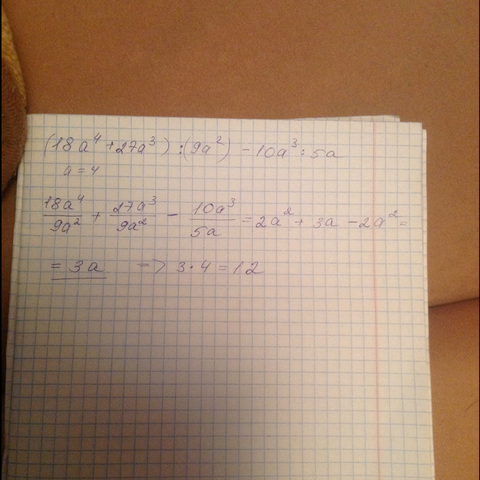 (18a⁴+27a³):(9a²) - 10a³:5a
a = 4
18a⁴/9a² + 27a³/9a² - 10a³/5a = 2a² + 3a - 2a² =
= 3a -> 3·4=12